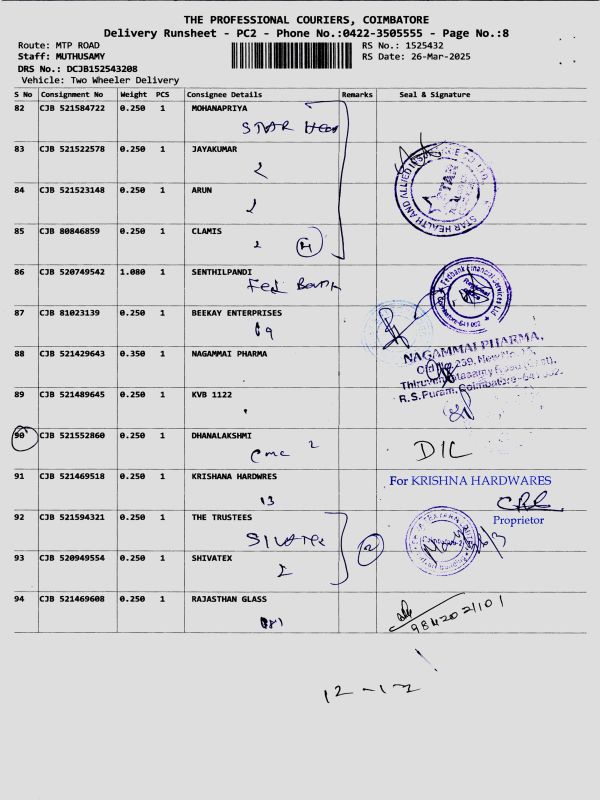 THE PROFESSIONAL COURIERS, COIMBATORE
Delivery Runsheet - PC2 - Phone No.:0422-3505555 - Page No.:8
Route: MTP ROAD
RS No.: 1525432
Staff: MUTHUSAMY
RS Date: 26-Mar-2025
DRS No.: DCJB152543208
Vehicle: Two Wheeler Delivery
S No Consignment No Weight PCS Consignee Details Remarks Seal & Signature
82 CJB 521584722 0.250 1 MOHANAPRIYA
STAR
83 CJB 521522578 0.250 1 JAYAKUMAR
84 CJB 521523148 0.250 1 ARUN
STAR HEALTH AND ALLIED INSURANCE CO. LTD.
STAR
85 CJB 80846859 0.250 1 CLAMIS
4
86 CJB 520749542 1.080 1 SENTHILPANDI
Fed Bank
Fedbank Financial Services Ltd
Coimbatore-641 002
87 CJB 81023139 0.250 1 BEEKAY ENTERPRISES
88 CJB 521429643 0.350 1 NAGAMMAI PHARMA
NAGAMMAI PHARMA,
Old No. 239, New No.
Thiruvenkatasamy Road (East),
R.S. Puram, Coimbatore-641 002.
89 CJB 521489645 0.250 1 KVB 1122
90 CJB 521552860 0.250 1 DHANALAKSHMI
cmc 2
D/L
91 CJB 521469518 0.250 1 KRISHANA HARDWRES
13
For KRISHNA HARDWARES
Proprietor
92 CJB 521594321 0.250 1 THE TRUSTEES
SIVATEX
2
93 CJB 520949554 0.250 1 SHIVATEX
94 CJB 521469608 0.250 1 RAJASTHAN GLASS
12-12